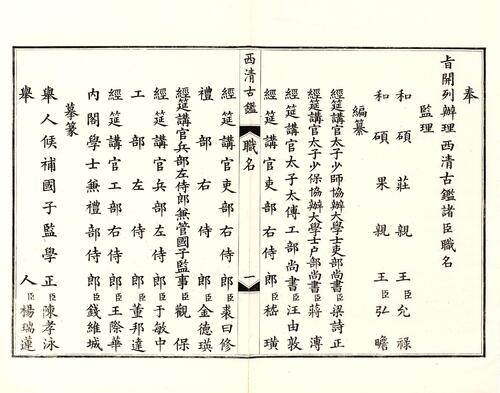 奉
旨開列辦理西清古鑑諸臣職名
監理
和碩莊親王臣允祿
和碩果親王臣弘瞻
編纂
經筵講官太子少師協辦大學士吏部尚書臣梁詩正
經筵講官太子少保協辦大學士戶部尚書臣蔣溥
經筵講官太子太傅工部尚書臣汪由敦
經筵講官吏部右侍郎臣嵇璜
西清古鑑
職名
一
經筵講官吏部右侍郎臣裘曰修
禮部右侍郎臣金德瑛
經筵講官兵部左侍郎兼管國子監事臣觀保
經筵講官兵部左侍郎臣于敏中
工部左侍郎臣董邦達
經筵講官工部右侍郎臣王際華
內閣學士兼禮部侍郎臣錢維城
摹篆
舉人候補國子監學正臣陳孝泳
舉人臣楊瑞蓮